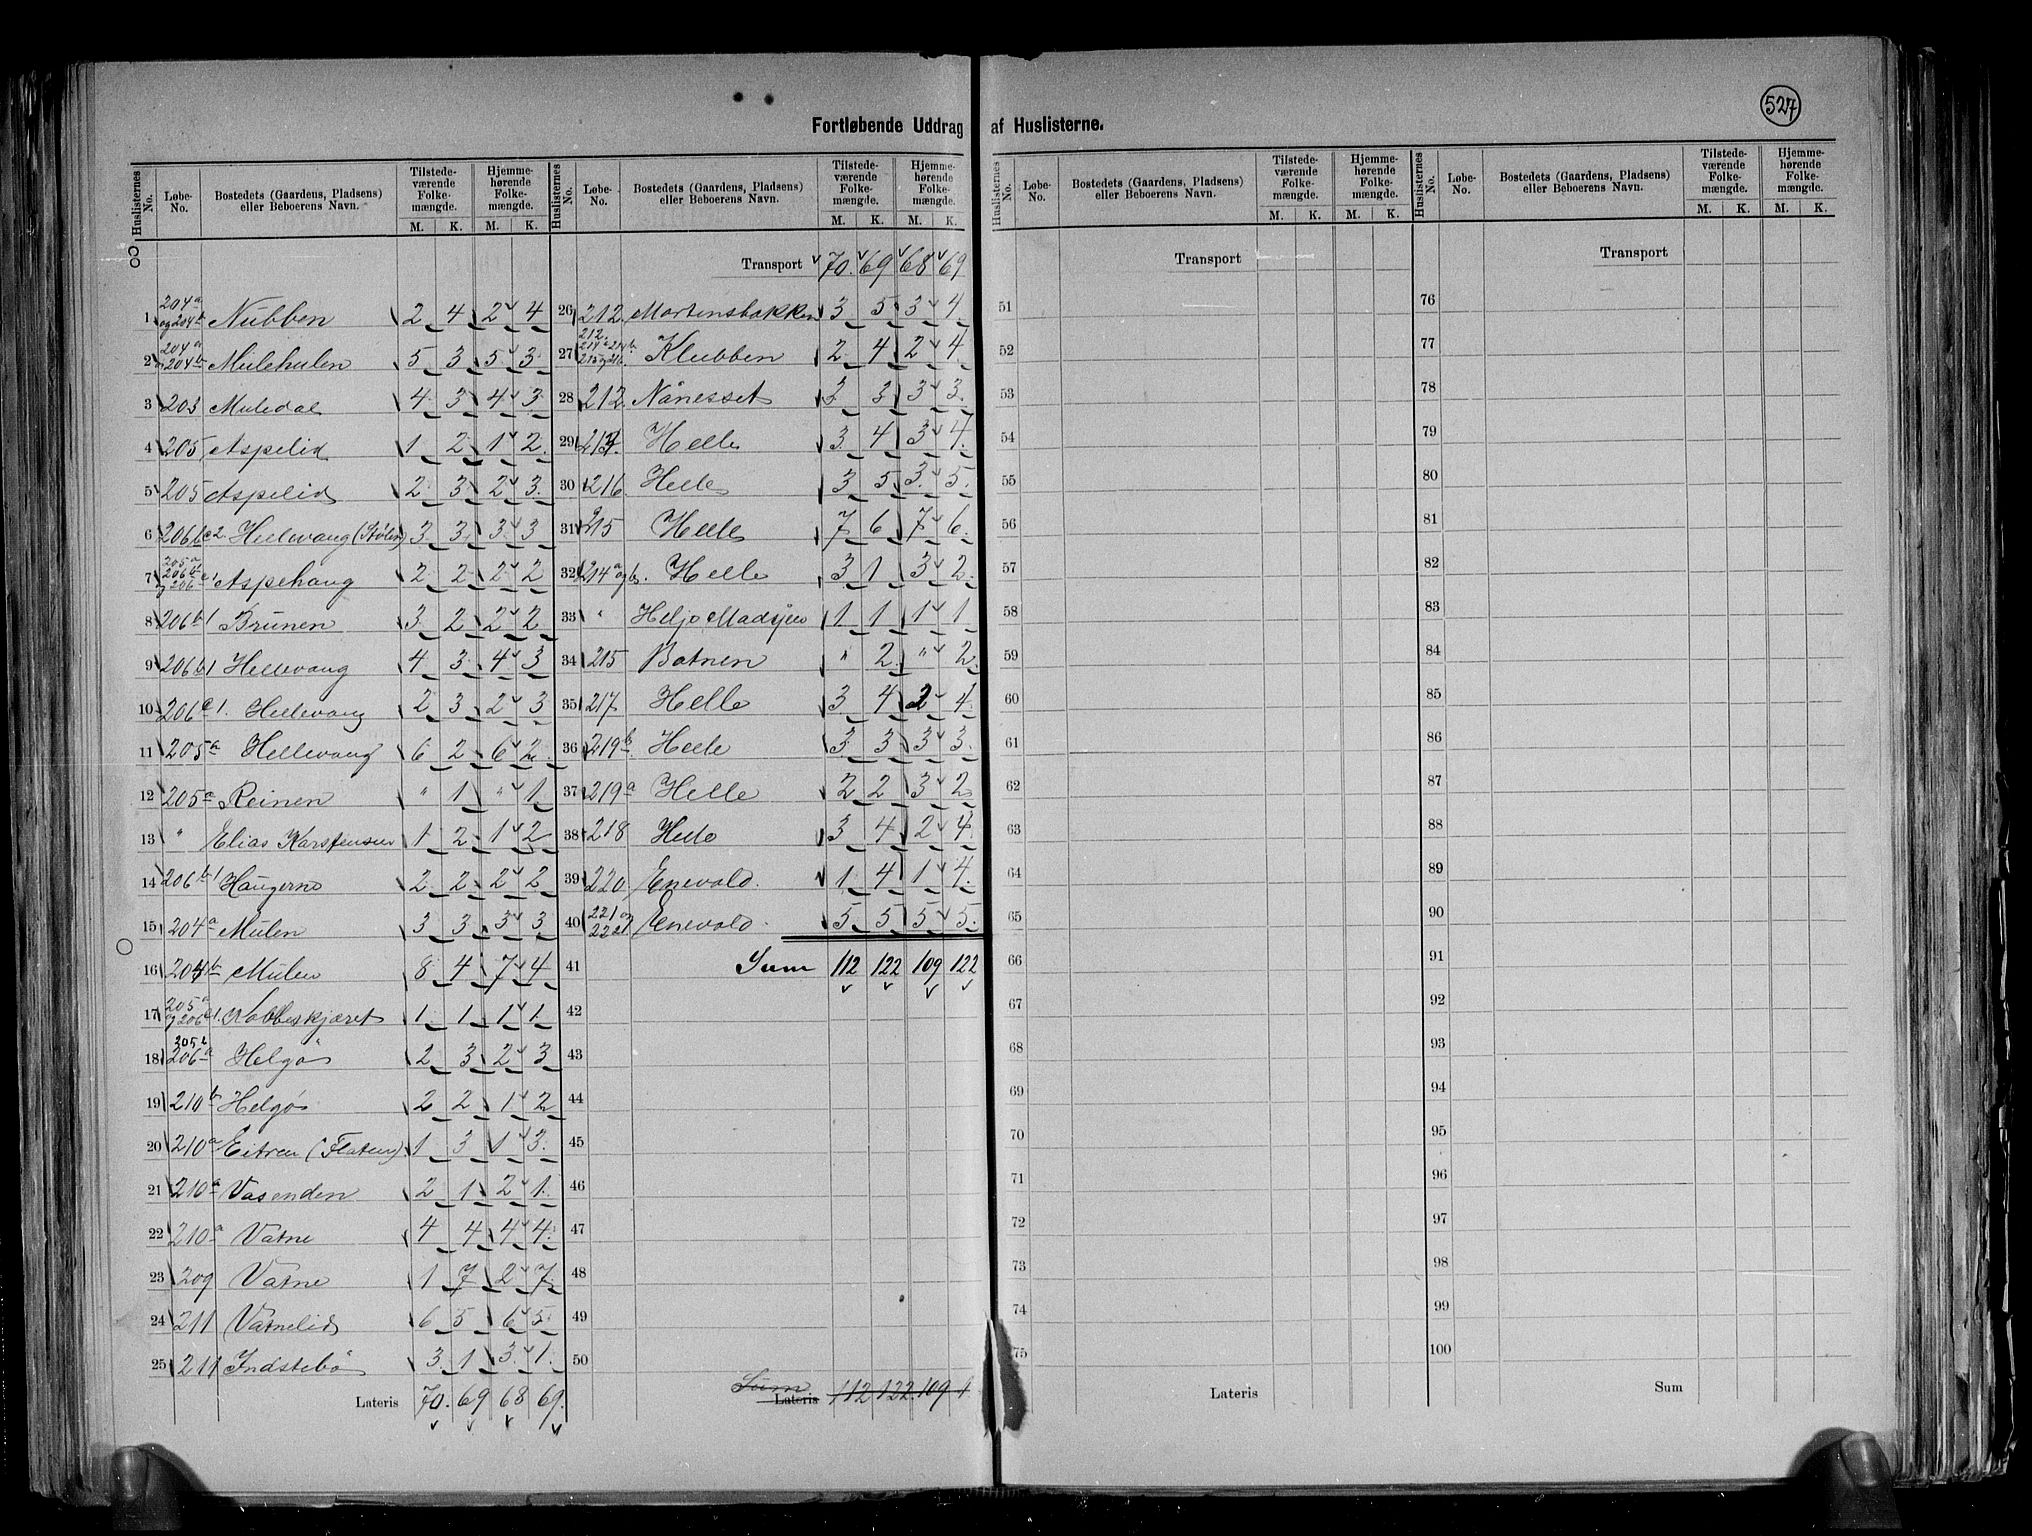 527
Fortløbende Uddrag af Huslisterne.
Huslisternes No. Løbe-No. Bostedets (Gaardens, Pladsens) eller Beboerens Navn. Tilstedeværende Folkemængde. M. K. Hjemmehørende Folkemængde. M. K.
1 204a og 204b Nubben 2 4 2 4
2 204a og 204b Mulehulen 5 3 5 3
3 203 Muledal 4 3 4 3
4 205 Aspelid 1 2 1 2
5 205 Aspelid 2 3 2 3
6 206b c2 Hellevang (Stølen) 3 3 3 3
7 205a 206b1 og 206c1 Aspehaug 2 2 2 2
8 206b1 Brunen 3 2 2 2
9 206b1 Hellevang 4 3 4 3
10 206c1. Hellevang 2 3 2 3
11 205a Hellevang 6 2 6 2
12 205a Reinen " 1 " 1
13 " Elias Karstensen 1 2 1 2
14 206b1 Haugerne 2 2 2 2
15 204a Mulen 3 3 3 3
16 204b Mulen 8 4 7 4
17 205a og 206c1. Nobbeskjæret 1 1 1 1
18 205b 206a Helgø 2 3 2 3
19 210b Helgø 2 2 1 2
20 210a Eitren (Flaten) 1 3 1 3
21 210a Vasenden 2 1 2 1
22 210a Vatne 4 4 4 4
23 209 Vatne 1 7 2 7
24 211 Vatnelid 6 5 6 5
25 211 Indstebø 3 1 3 1
Lateris 70. 69 68 69.
Huslisternes No. Løbe-No. Bostedets (Gaardens, Pladsens) eller Beboerens Navn. Tilstedeværende Folkemængde. M. K. Hjemmehørende Folkemængde. M. K.
Transport 70. 69 68 69
26 212 Mortensbakken 3 5 3 4
27 212 214a 214b 215 og 216 Klubben 2 4 2 4
28 212 Nånesset 3 3 3 3
29 Helle 3 4 3 4
30 216 Helle 3 5 3 5
31 215 Helle 7 6 7 6
32 214a og b. Helle 3 1 3 2
33 " Helje Madsjen 1 1 1 1
34 215 Botnen " 2 " 2
35 217 Helle 3 4 2 4
36 219b Helle 3 3 3 3
37 219a Helle 2 2 3 2
38 218 Helle 3 4 2 4
39 220 Enevald. 1 4 1 4
40 221 og 222 Enevald. 5 5 5 5
41 Sum 112 122 109 122
42
43
44
45
46
47
48
49
50
Sum Lateris 112 122. 109 1
Huslisternes No. Løbe-No. Bostedets (Gaardens, Pladsens) eller Beboerens Navn. Tilstedeværende Folkemængde. M. K. Hjemmehørende Folkemængde. M. K.
Transport
51
52
53
54
55
56
57
58
59
60
61
62
63
64
65
66
67
68
69
70
71
72
73
74
75
Lateris
Huslisternes No. Løbe-No. Bostedets (Gaardens, Pladsens) eller Beboerens Navn. Tilstedeværende Folkemængde. M. K. Hjemmehørende Folkemængde. M. K.
Transport
76
77
78
79
80
81
82
83
84
85
86
87
88
89
90
91
92
93
94
95
96
97
98
99
100
Sum